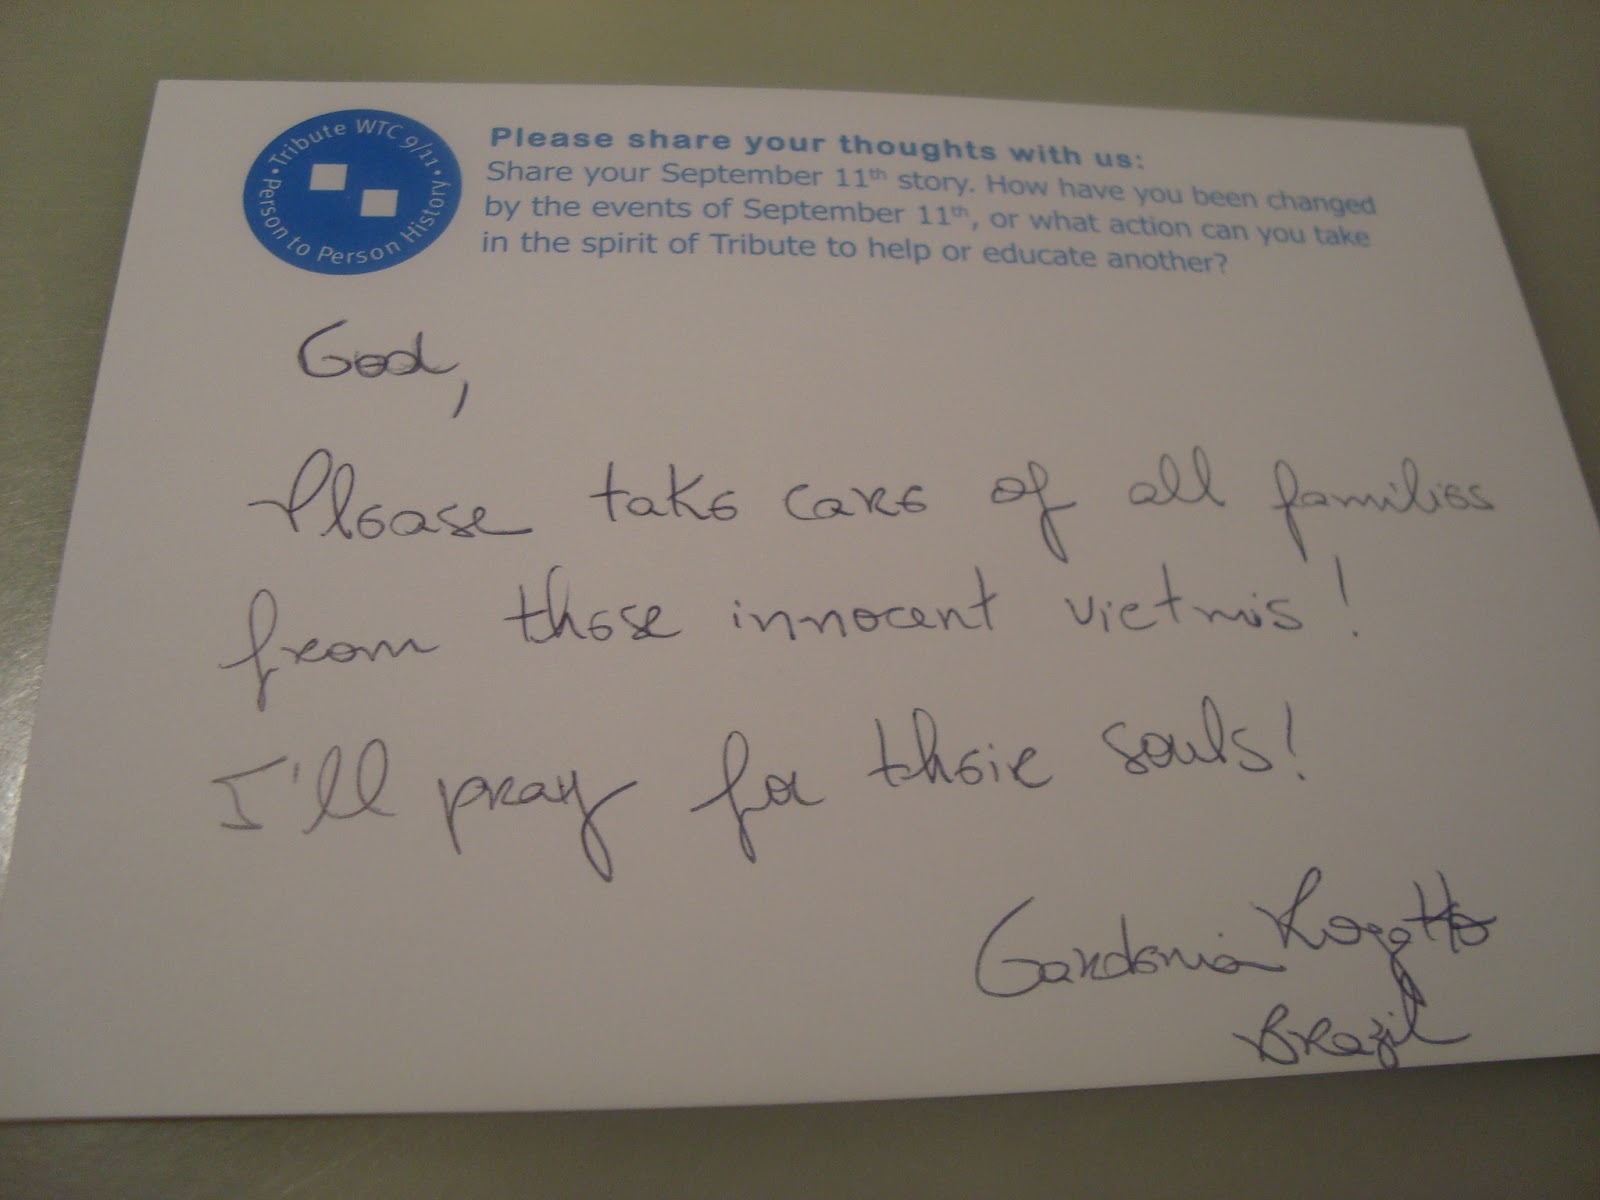 Tribute WTC 9/11 • Person to Person History •
Please share your thoughts with us:
Share your September 11th story. How have you been changed
by the events of September 11th, or what action can you take
in the spirit of Tribute to help or educate another?
God,
Please take care of all families
from those innocent victmis!
I'll pray for their souls!
Gardenia
Brazil